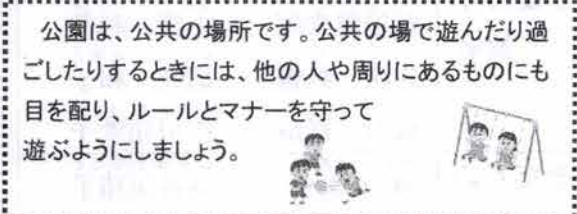 公園は、公共の場所です。公共の場で遊んだり過
ごしたりするときには、他の人や周りにあるものにも
目を配り、ルールとマナーを守って
遊ぶようにしましょう。